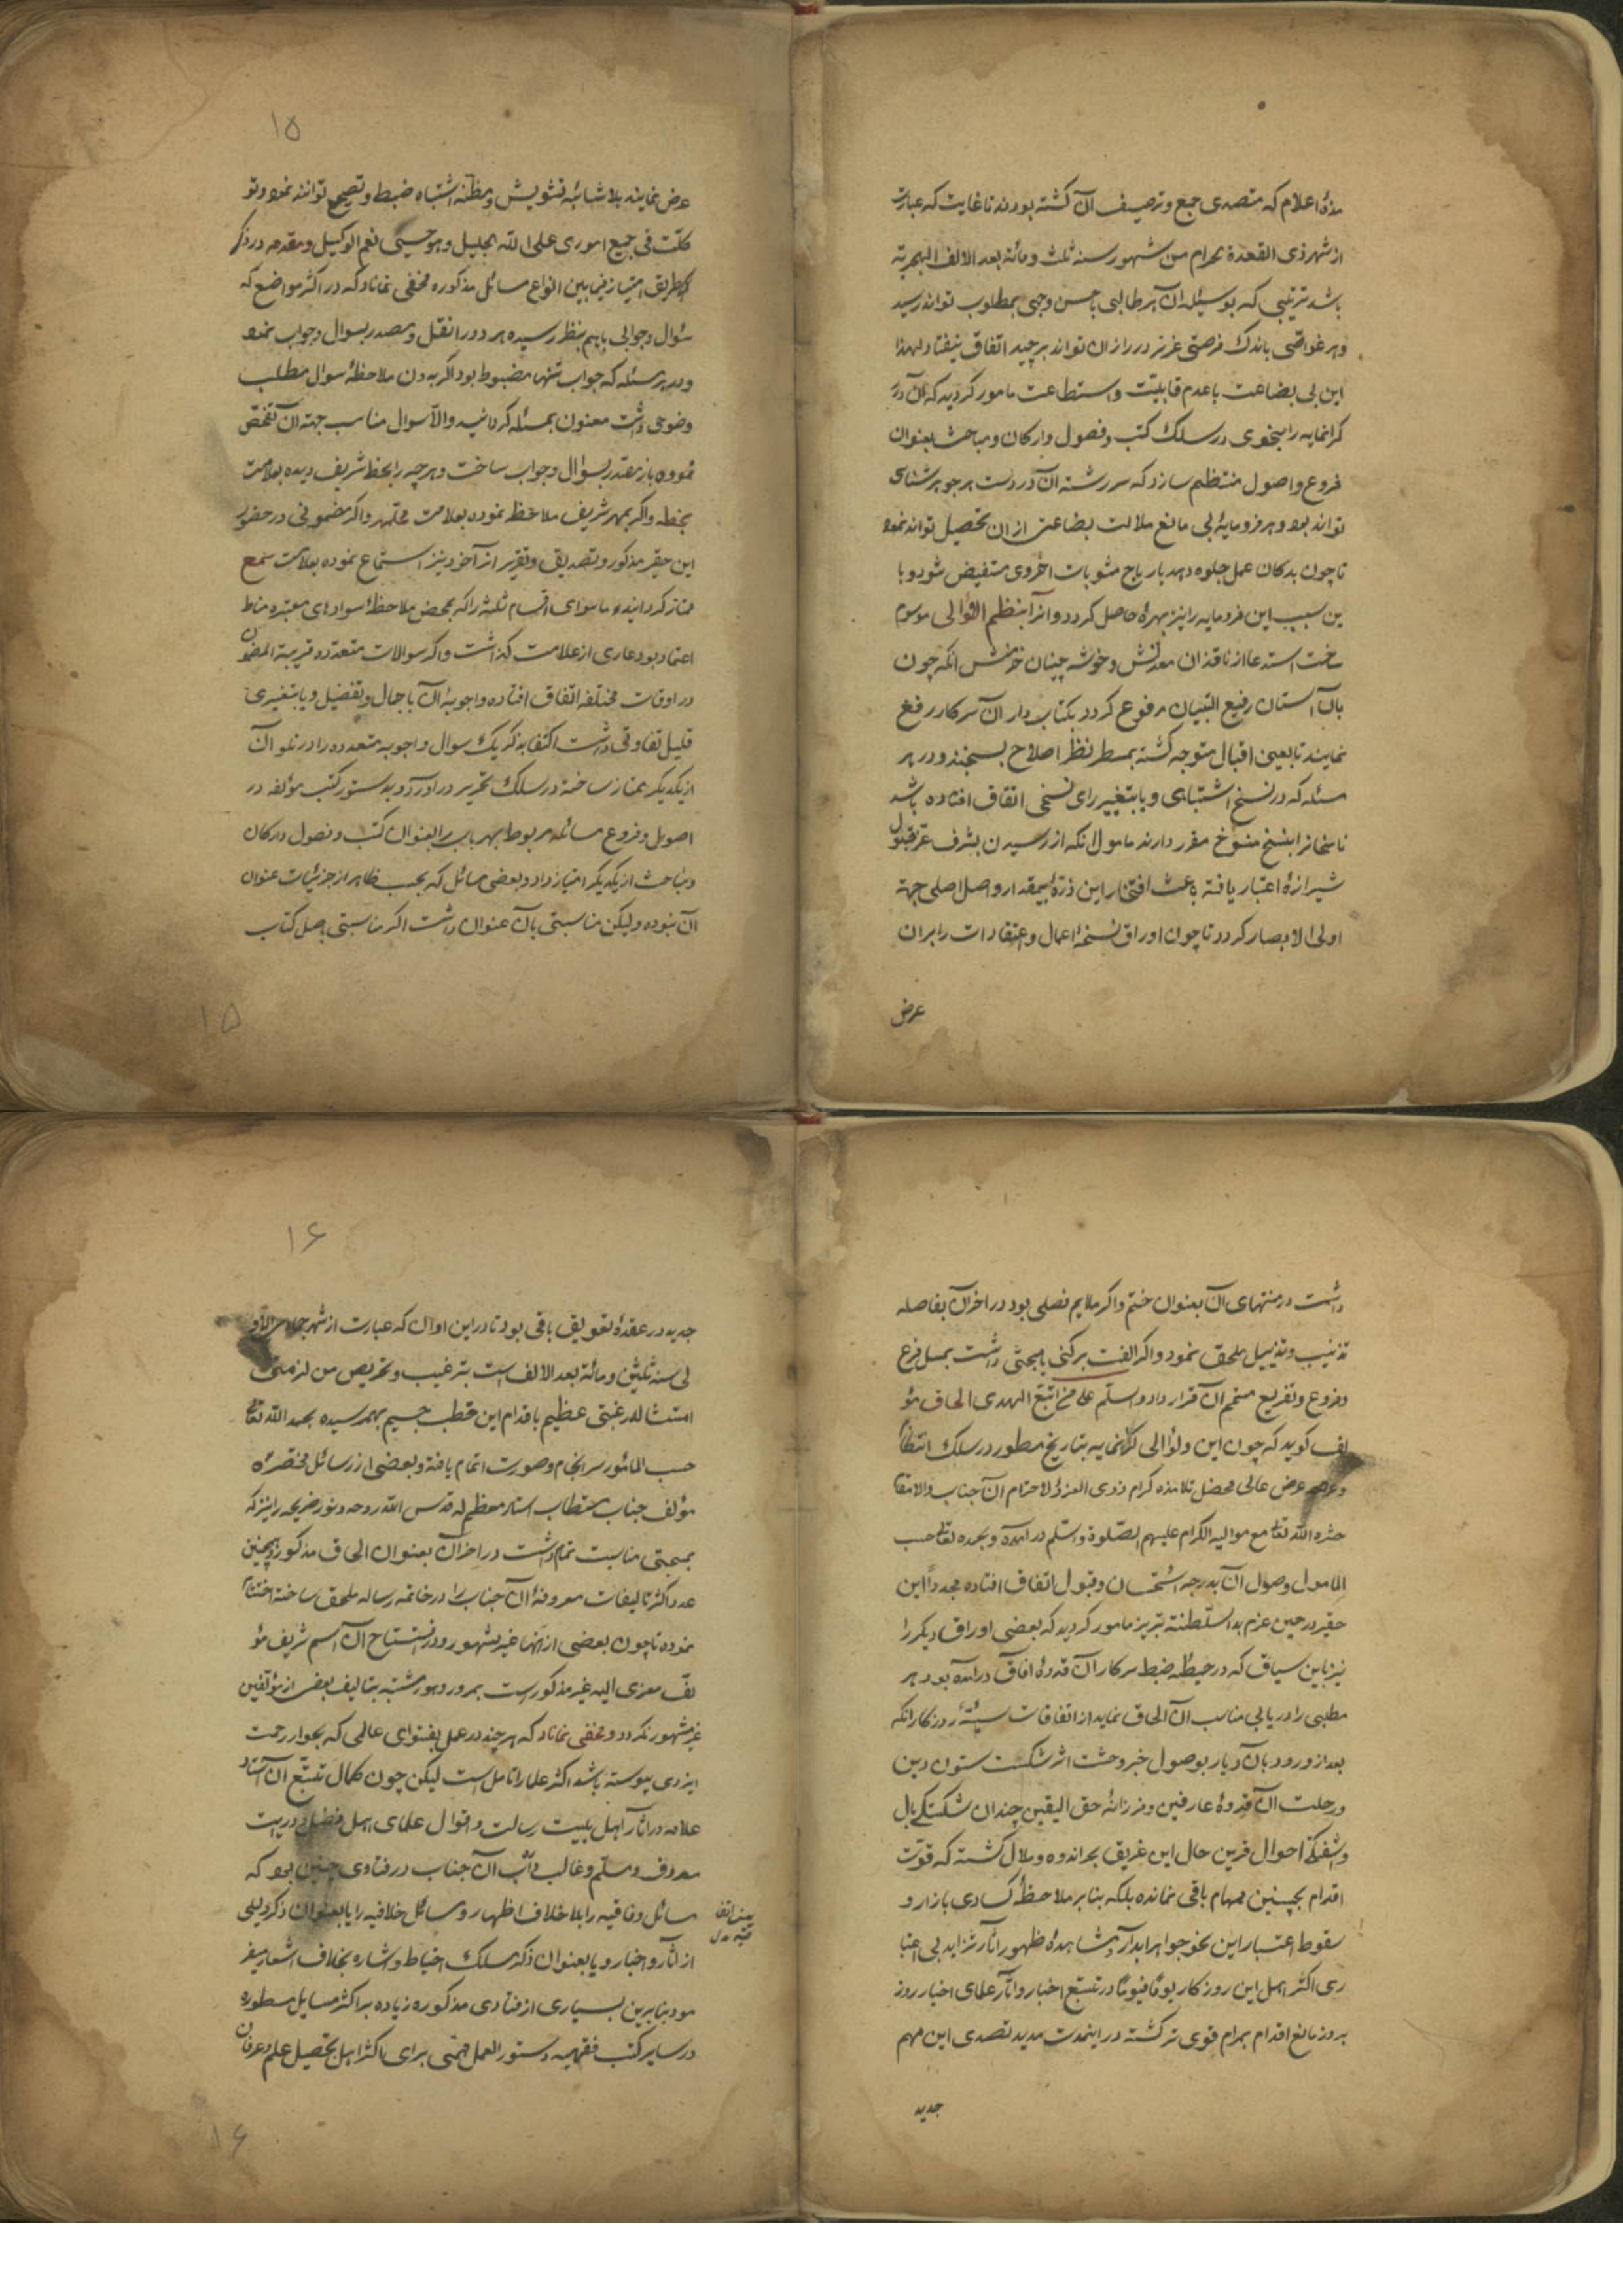 مذهٔ اعلام که متصدی جمع و ترصیف آن گشته بودند تا غایت که عبارت
از شهر ذی القعدة الحرام من شهور سنه ثلث و مائة بعد الالف الهجریة
باشد ترتیبی که بوسیله آن هر طالبی باحسن وجهی بمطلوب تواند رسید
و هر غواصی باندک فرصتی عزیز درر از ان تواند برچید اتفاق نیفتاد لهذا
این بی بضاعت با عدم قابلیت و استطاعت مامور گردید که آن درر
گرانمایه را بنحوی در سلک کتب و فصول و ارکان و مباحث بعنوان
فروع و اصول منتظم سازد که سررشته آن در دست هر جوهرشناسی
تواند بود و هر فرومایهٔ بی مانع ملالت بضاعتی از ان تحصیل تواند نمود
تا چون بدکان عمل جلوه دهد بارباح مثوبات اخروی مستفیض شود و با
ین سبب این فرومایه را نیز بهرهٔ حاصل گردد و آنرا بنظم اللؤالی موسوم
ساخت استدعا از ناقدان معدنش و خوشه چینان خرمنش آنکه چون
بآن آستان رفیع البنیان مرفوع گردد بکتاب دار آن سرکار رفع
نمایند تا بعین اقبال متوجه گشته بمسطر نظر اصلاح بسنجند و در هر
مسئله که در نسخ اشتباهی و یا بتغییر رای نسخی اتفاق افتاده باشد
ناسخانرا بنسخ منسوخ مقرر دارند مامول آنکه از رسیدن بشرف عز قبول
شیرازهٔ اعتبار یافته باعث افتخار این ذرهٔ بیمقدار و اصل اصلی جهة
اولی الابصار گردد تا چون اوراق نسخهٔ اعمال و اعتقادات را بران
عرض
۱۵
عرض نمایند بلا شائبهٔ تشویش و مظنه اشتباه ضبط و تصحیح توانند نمود و تو
کلت فی جمیع اموری علی الله الجلیل و هو حسبی نعم الوکیل و مقدمه در ذکر
طریق امتیاز فیما بین انواع مسائل مذکوره مخفی نماناد که در اکثر مواضع که
سؤال و جوابی باهم بنظر رسیده هر دو را نقل و مصدر بسوال و جواب نمود
و در هر مسئله که جواب تنها مضبوط بود اگر بدون ملاحظهٔ سوال مطلب
وضوحی داشت معنون بمسئله گردانید والا سوال مناسب جهة آن تفحص
نموده باز مصدر بسؤال و جواب ساخت و هر چه را بخط شریف دیده بعلامت
بخطه و اگر بمهر شریف ملاحظه نموده بعلامت محلمهر و اگر مضمونی در حضور
این حقیر مذکور و تصدیق و تقریر از آخوند نیز استماع نموده بعلامت سمع
ممتاز گردانیده ماسوای اقسام ثلثه را که بمحض ملاحظهٔ سوادهای معتبره مناط
اعتماد بود عاری از علامت گذاشت و اگر سوالات متعدده قریبة المضمون
در اوقات مختلفه اتفاق افتاده و اجوبهٔ آن باجمال و تفصیل و یا بتغییری
قلیل تفاوتی داشت اکتفا بذکر یک سوال و اجوبه متعدده را در تلو آن
از یکدیگر ممتاز ساخته در سلک تحریر در آورد و بدستور کتب مؤلفه در
اصول و فروع مسائله مربوط بهر باب را بعنوان کتب و فصول و ارکان
و مباحث از یکدیگر امتیاز داد و بعضی مسائل که بحسب ظاهر از جزئیات عنوان
آن نبوده و لیکن مناسبتی بآن عنوان داشت اگر مناسبتی باصل کتاب
۱۵
داشت در منتهای آن بعنوان ختم و اگر ملایم فصلی بود در اخر آن بفاصله
تذنیب و تذییل ملحق نمود و اگر الفت برکنی یا مبحثی داشت بمسل فرع
و فروع و تفریع منضم آن قرار داد و السلم علی من اتبع الهدی الحاق مؤ
لف گوید که چون این و لؤالی گرانمایه بتاریخ مسطور در سلک انتظام
و عرض عالی محضل تلامذه کرام ذوی العز و الاحترام آن جناب والا مقام
حشره الله تعالی مع موالیه الکرام علیهم الصلوة والسلم در آمده و بحمده تعالی حسب
المامول وصول آن بدرجه استحسان و قبول اتفاق افتاده مجدداً این
حقیر در حین عزم بدار السلطنه تبریز مامور گردید که بعضی اوراق دیگر را
نیز باین سیاق که در حیطهٔ ضبط سرکار آن قدوهٔ آفاق در آمده بود هر
مطلبی را در بابی مناسب آن الحاق نماید از اتفاقات سیئهٔ روزگار انکه
بعد از ورود بان دیار بوصول خبر وحشت اثر شکست ستون دین
و رحلت آن قدوهٔ عارفین و فرزانهٔ حق الیقین چندان شکستگی بال
و آشفتگی احوال قرین حال این غریق بحر اندوه و ملال گشته که قوت
اقدام بچنین مهام باقی نمانده بلکه بنا بر ملاحظهٔ کسادی بازار و
سقوط اعتبار این نحو جواهر ابدار و مشاهدهٔ ظهور آثار تزاید بی اعتبا
ری اکثر اهل این روزگار یوماً فیوماً در تتبع اخبار و آثار علمای اخیار روز
بروز مانع اقدام بمرام قوی تر گشته در اینمدت مدید تصدی این مهم
جدید
۱۶
جدید در عقدهٔ تعویق باقی بود تا در این اوان که عبارت از شهر جمادی الاو
لی سنه ثلثین و مائة بعد الالف است بترغیب و تحریص من لزمنی
امتثاله رغبتی عظیم باقدام این خطب جسیم بهمرسیده بحمد الله تعالی
حسب المأمور سرانجام و صورت اتمام یافته و بعضی از رسائل مختصرهٔ
مؤلف جناب مستطاب استاد معظم له قدس الله روحه و نور ضریحه را نیز که
بمبحثی مناسبت تمام داشت در اخر آن بعنوان الحاق مذکور و همچنین
عدد اکثر تالیفات معروفهٔ آن جناب را در خاتمه رساله ملحق ساخته اختتام
نموده تا چون بعضی از انها غیر مشهور و در استفتاح آن اسم شریف مؤ
لف معزی الیه غیر مذکور است بمرور دهور مشتبه بتالیف بعض از مؤلفین
غیر مشهور نگردد و مخفی نماناد که هر چند در عمل بفتوای عالمی که بجوار رحمت
ایزدی پیوسته باشد اکثر علما را تامل است لیکن چون کمال تتبع آن استاد
علامه در آثار اهل بیت رسالت و اقوال علمای اهل فضل و درایت
معروف و مسلم و غالب داب آن جناب در فتاوی چنین بود که
مسائل وفاقیه را بلا خلاف اظهار و مسائل خلافیه را یا بعنوان ذکر دلیلی
یعنی اتفا
قیه
از آثار و اخبار و یا بعنوان ذکر مسلک احتیاط و اشاره بخلاف اشعار میفر
مود بنابرین بسیاری از فتاوی مذکوره زیاده بر اکثر مسایل مسطوره
در سایر کتب فقهیه دستور العمل مهمی برای اکثر اهل تحصیل علم و عرفان
۱۶